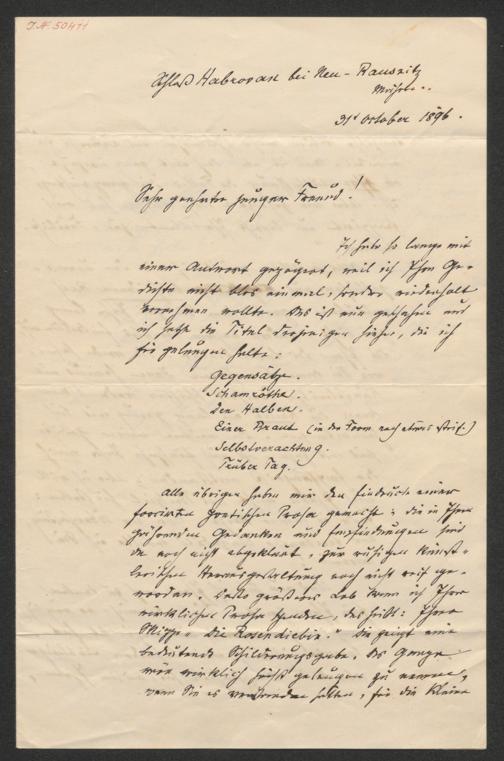 J.N. 50471
Schloß Habrovan bei Neu-Rausnitz
Mähren.
31t October 1896.
Sehr geehrter junger Freund!
Ich habe so lange mit
einer Antwort gezögert, weil ich Ihre Ge-
dichte nicht blos einmal, sondern wiederholt
vornehmen wollte. Das ist nun geschehen und
ich setze die Titel derjenigen hieher, die ich
für gelungen halte:
Gegensätze.
Schamröthe.
Den Halben.
Einer Braut (in der Form noch etwas steif.)
Selbstverachtung.
Trüber Tag.
Alle übrigen haben mir den Eindruck einer
forcirten poetischen Prosa gemacht: die in Ihnen
gährenden Gedanken und Empfindungen sind
da noch nicht abgeklärt, zur ruhigen künst-
lerischen Herausgestaltung noch nicht reif ge-
worden. Desto größeres Lob kann ich Ihrer
wirklichen Prosa spenden, das heißt: Ihrer
Skizze "Die Rosendiebin." Sie zeigt eine
bedeutende Schilderungsgabe. Das Ganze
wäre wirklich höchst gelungen zu nennen,
wenn Sie es verstanden hätten, für die kleine